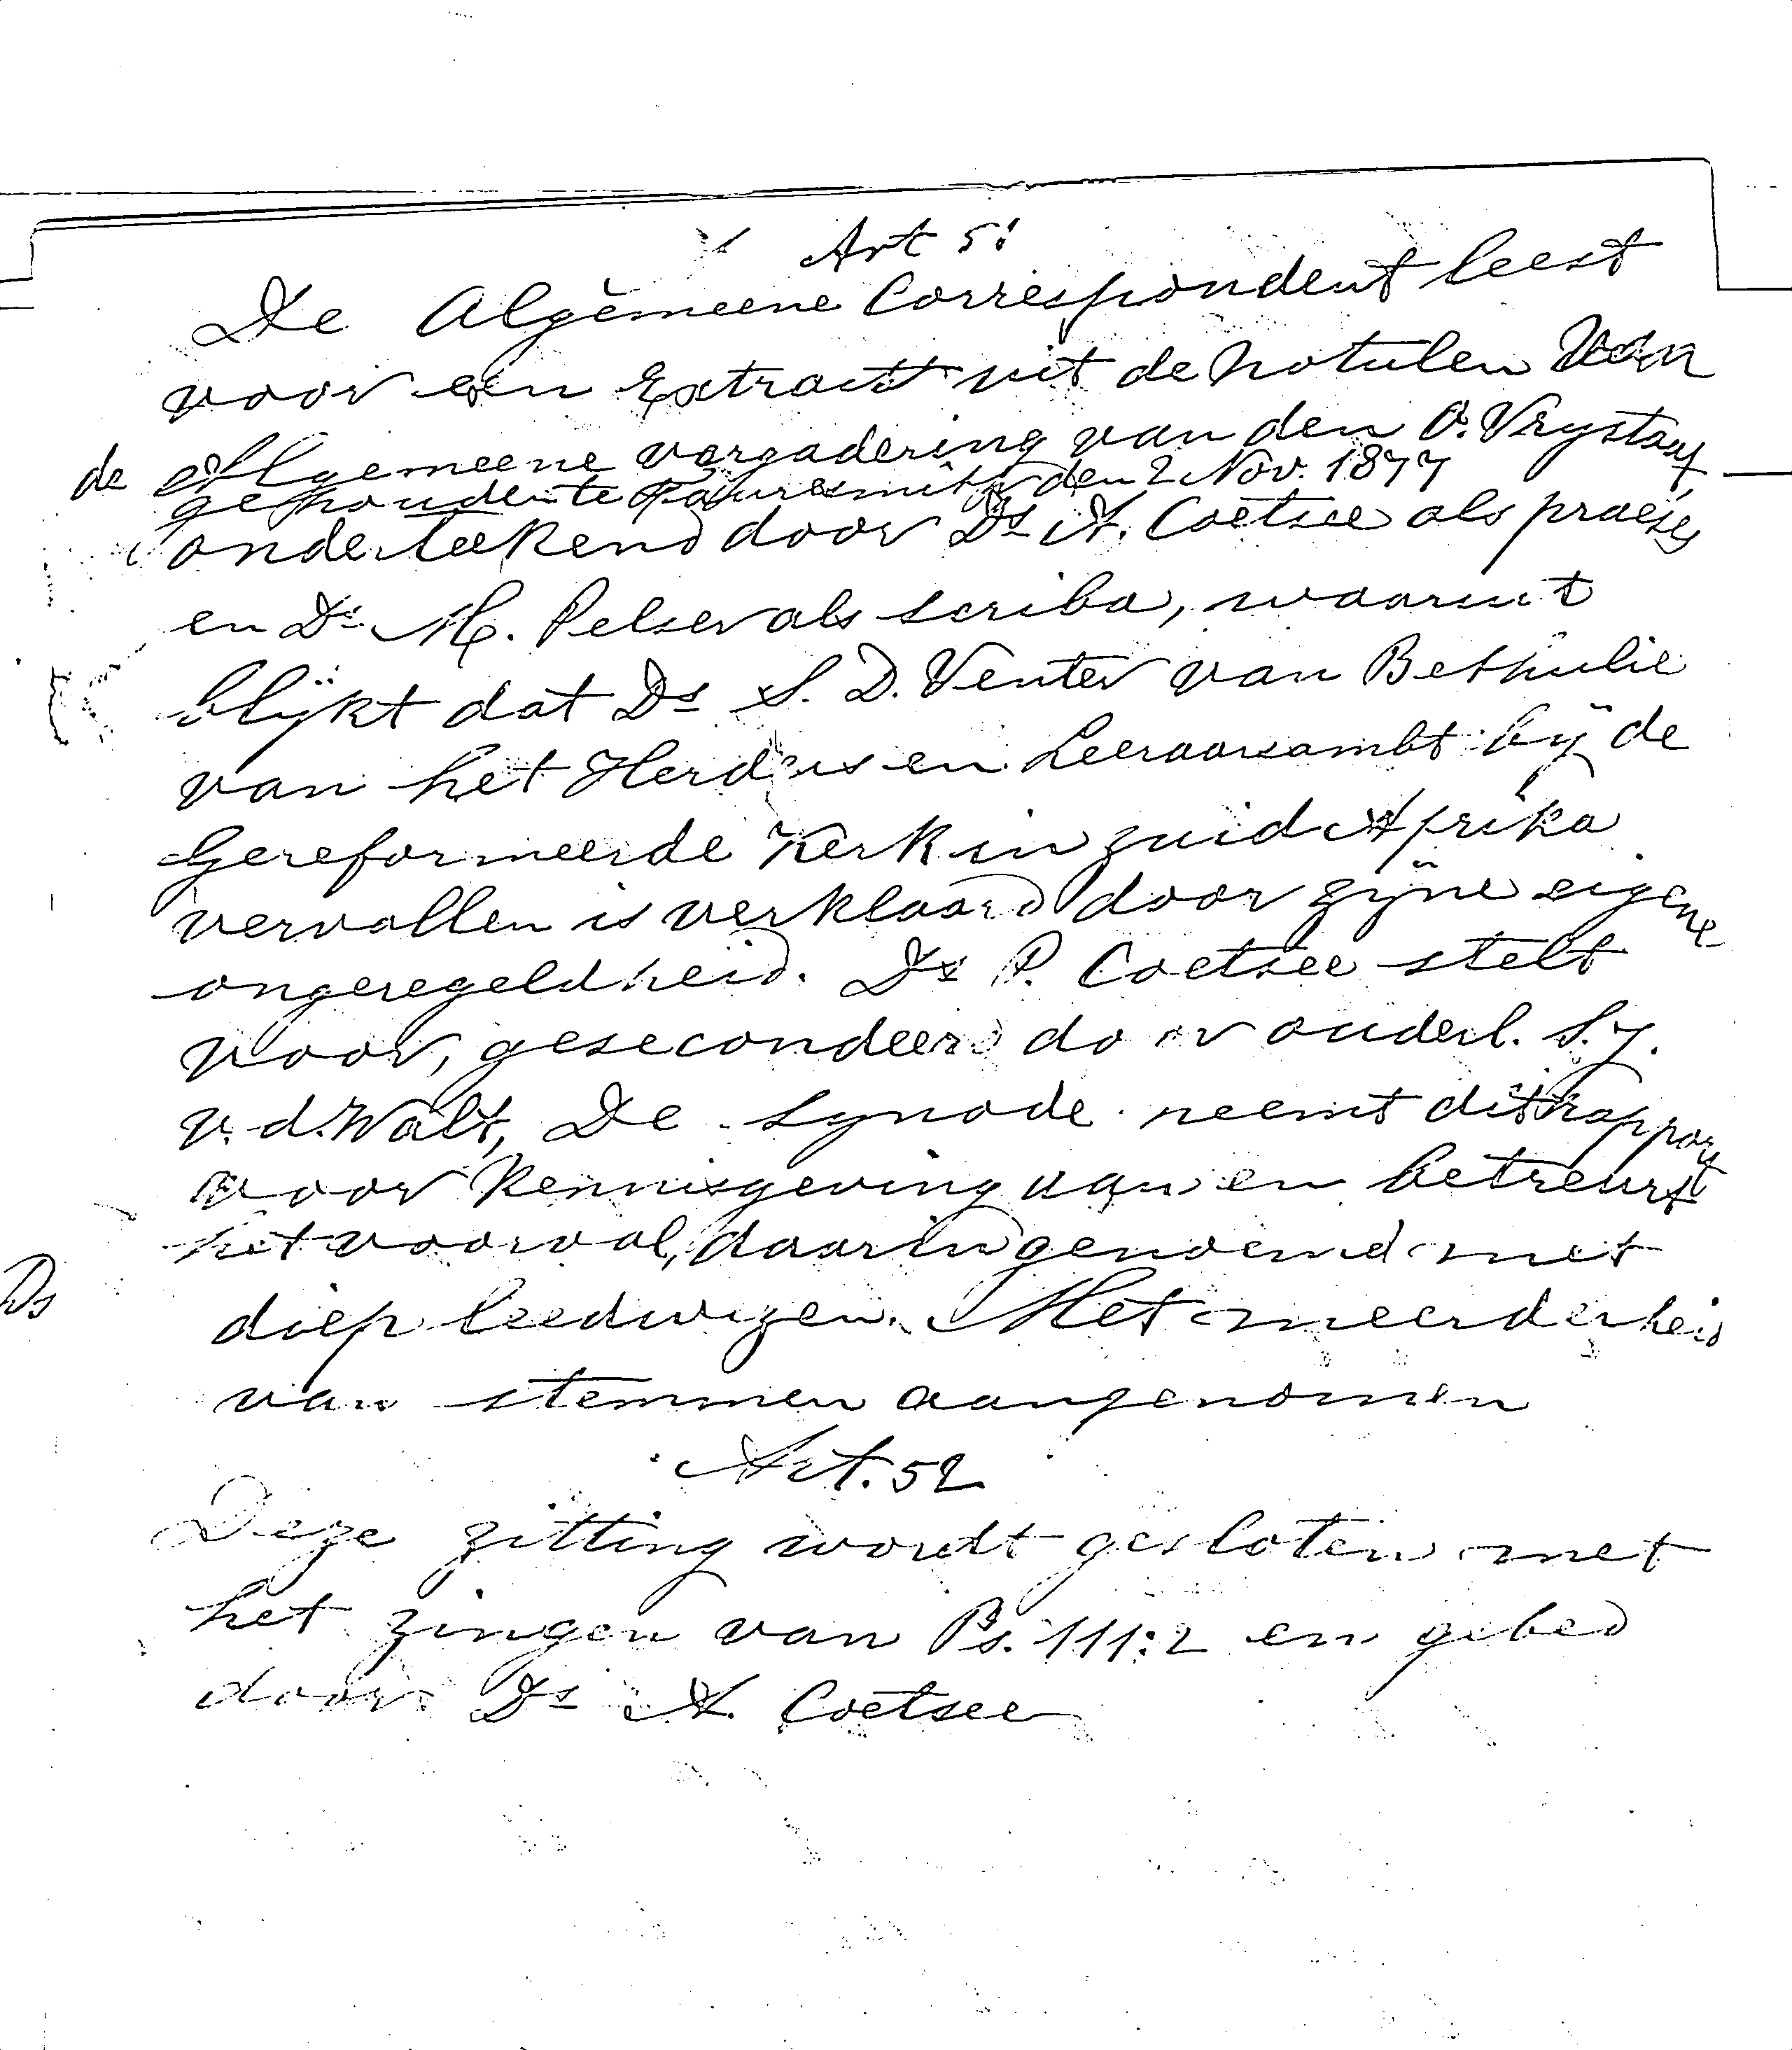 Art 51
De Algemeene Correspondent leest
voor een Extract uit de Notulen van
de Algemeene vergadering van den O. Vrystaat
gehouden te Fauresmith den 2 Nov. 1877
onderteekend door Ds A. Coetsee als praeses
en Ds M. Pelser als scriba, waaruit
blijkt dat Ds S. D. Venter van Bethulie
van het Herders en Leeraarsambt bij de
Gereformeerde Kerk in Zuid Afrika
vervallen is verklaard door zijne eigene
ongeregeldheid. Ds P. Coetsee stelt
voor, gesecondeerd door ouderl. S. J.
v. d. Walt, De Synode neemt dit rapport
voor kennisgeving aan en betreurt
het voorval, daarin genoemd met
Ds
diep leedwezen. Met meerderheid
van stemmen aangenomen
Art. 52
Deze zitting wordt gesloten met
het zingen van Ps. 111:2 en gebed
door Ds A. Coetsee